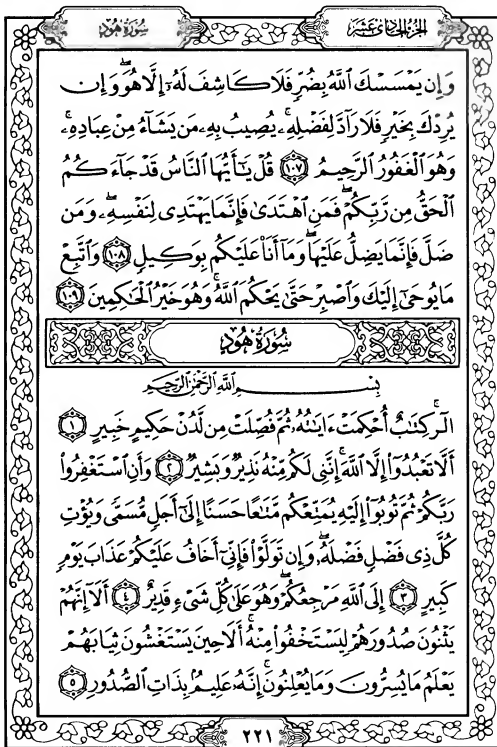 سُورَةُ هُودٍ
الجُزْءُ الحَادِي عَشَرَ
وَإِن يَمْسَسْكَ ٱللَّهُ بِضُرٍّ فَلَا كَاشِفَ لَهُۥٓ إِلَّا هُوَۖ وَإِن
يُرِدْكَ بِخَيْرٍ فَلَا رَآدَّ لِفَضْلِهِۦۚ يُصِيبُ بِهِۦ مَن يَشَآءُ مِنْ عِبَادِهِۦۚ
وَهُوَ ٱلْغَفُورُ ٱلرَّحِيمُ ١٠٧ قُلْ يَٰٓأَيُّهَا ٱلنَّاسُ قَدْ جَآءَكُمُ
ٱلْحَقُّ مِن رَّبِّكُمْۖ فَمَنِ ٱهْتَدَىٰ فَإِنَّمَا يَهْتَدِى لِنَفْسِهِۦۖ وَمَن
ضَلَّ فَإِنَّمَا يَضِلُّ عَلَيْهَاۖ وَمَآ أَنَا۠ عَلَيْكُم بِوَكِيلٍ ١٠٨ وَٱتَّبِعْ
مَا يُوحَىٰٓ إِلَيْكَ وَٱصْبِرْ حَتَّىٰ يَحْكُمَ ٱللَّهُۚ وَهُوَ خَيْرُ ٱلْحَٰكِمِينَ ١٠٩
سُورَةُ هُودٍ
بِسْمِ ٱللَّهِ ٱلرَّحْمَٰنِ ٱلرَّحِيمِ
الٓرۚ كِتَٰبٌ أُحْكِمَتْ ءَايَٰتُهُۥ ثُمَّ فُصِّلَتْ مِن لَّدُنْ حَكِيمٍ خَبِيرٍ ١
أَلَّا تَعْبُدُوٓا۟ إِلَّا ٱللَّهَۚ إِنَّنِى لَكُم مِّنْهُ نَذِيرٌ وَبَشِيرٌ ٢ وَأَنِ ٱسْتَغْفِرُوا۟
رَبَّكُمْ ثُمَّ تُوبُوٓا۟ إِلَيْهِ يُمَتِّعْكُم مَّتَٰعًا حَسَنًا إِلَىٰٓ أَجَلٍ مُّسَمًّى وَيُؤْتِ
كُلَّ ذِى فَضْلٍ فَضْلَهُۥۖ وَإِن تَوَلَّوْا۟ فَإِنِّىٓ أَخَافُ عَلَيْكُمْ عَذَابَ يَوْمٍ
كَبِيرٍ ٣ إِلَى ٱللَّهِ مَرْجِعُكُمْۖ وَهُوَ عَلَىٰ كُلِّ شَىْءٍ قَدِيرٌ ٤ أَلَآ إِنَّهُمْ
يَثْنُونَ صُدُورَهُمْ لِيَسْتَخْفُوا۟ مِنْهُۚ أَلَا حِينَ يَسْتَغْشُونَ ثِيَابَهُمْ
يَعْلَمُ مَا يُسِرُّونَ وَمَا يُعْلِنُونَۚ إِنَّهُۥ عَلِيمٌۢ بِذَاتِ ٱلصُّدُورِ ٥
٢٢١